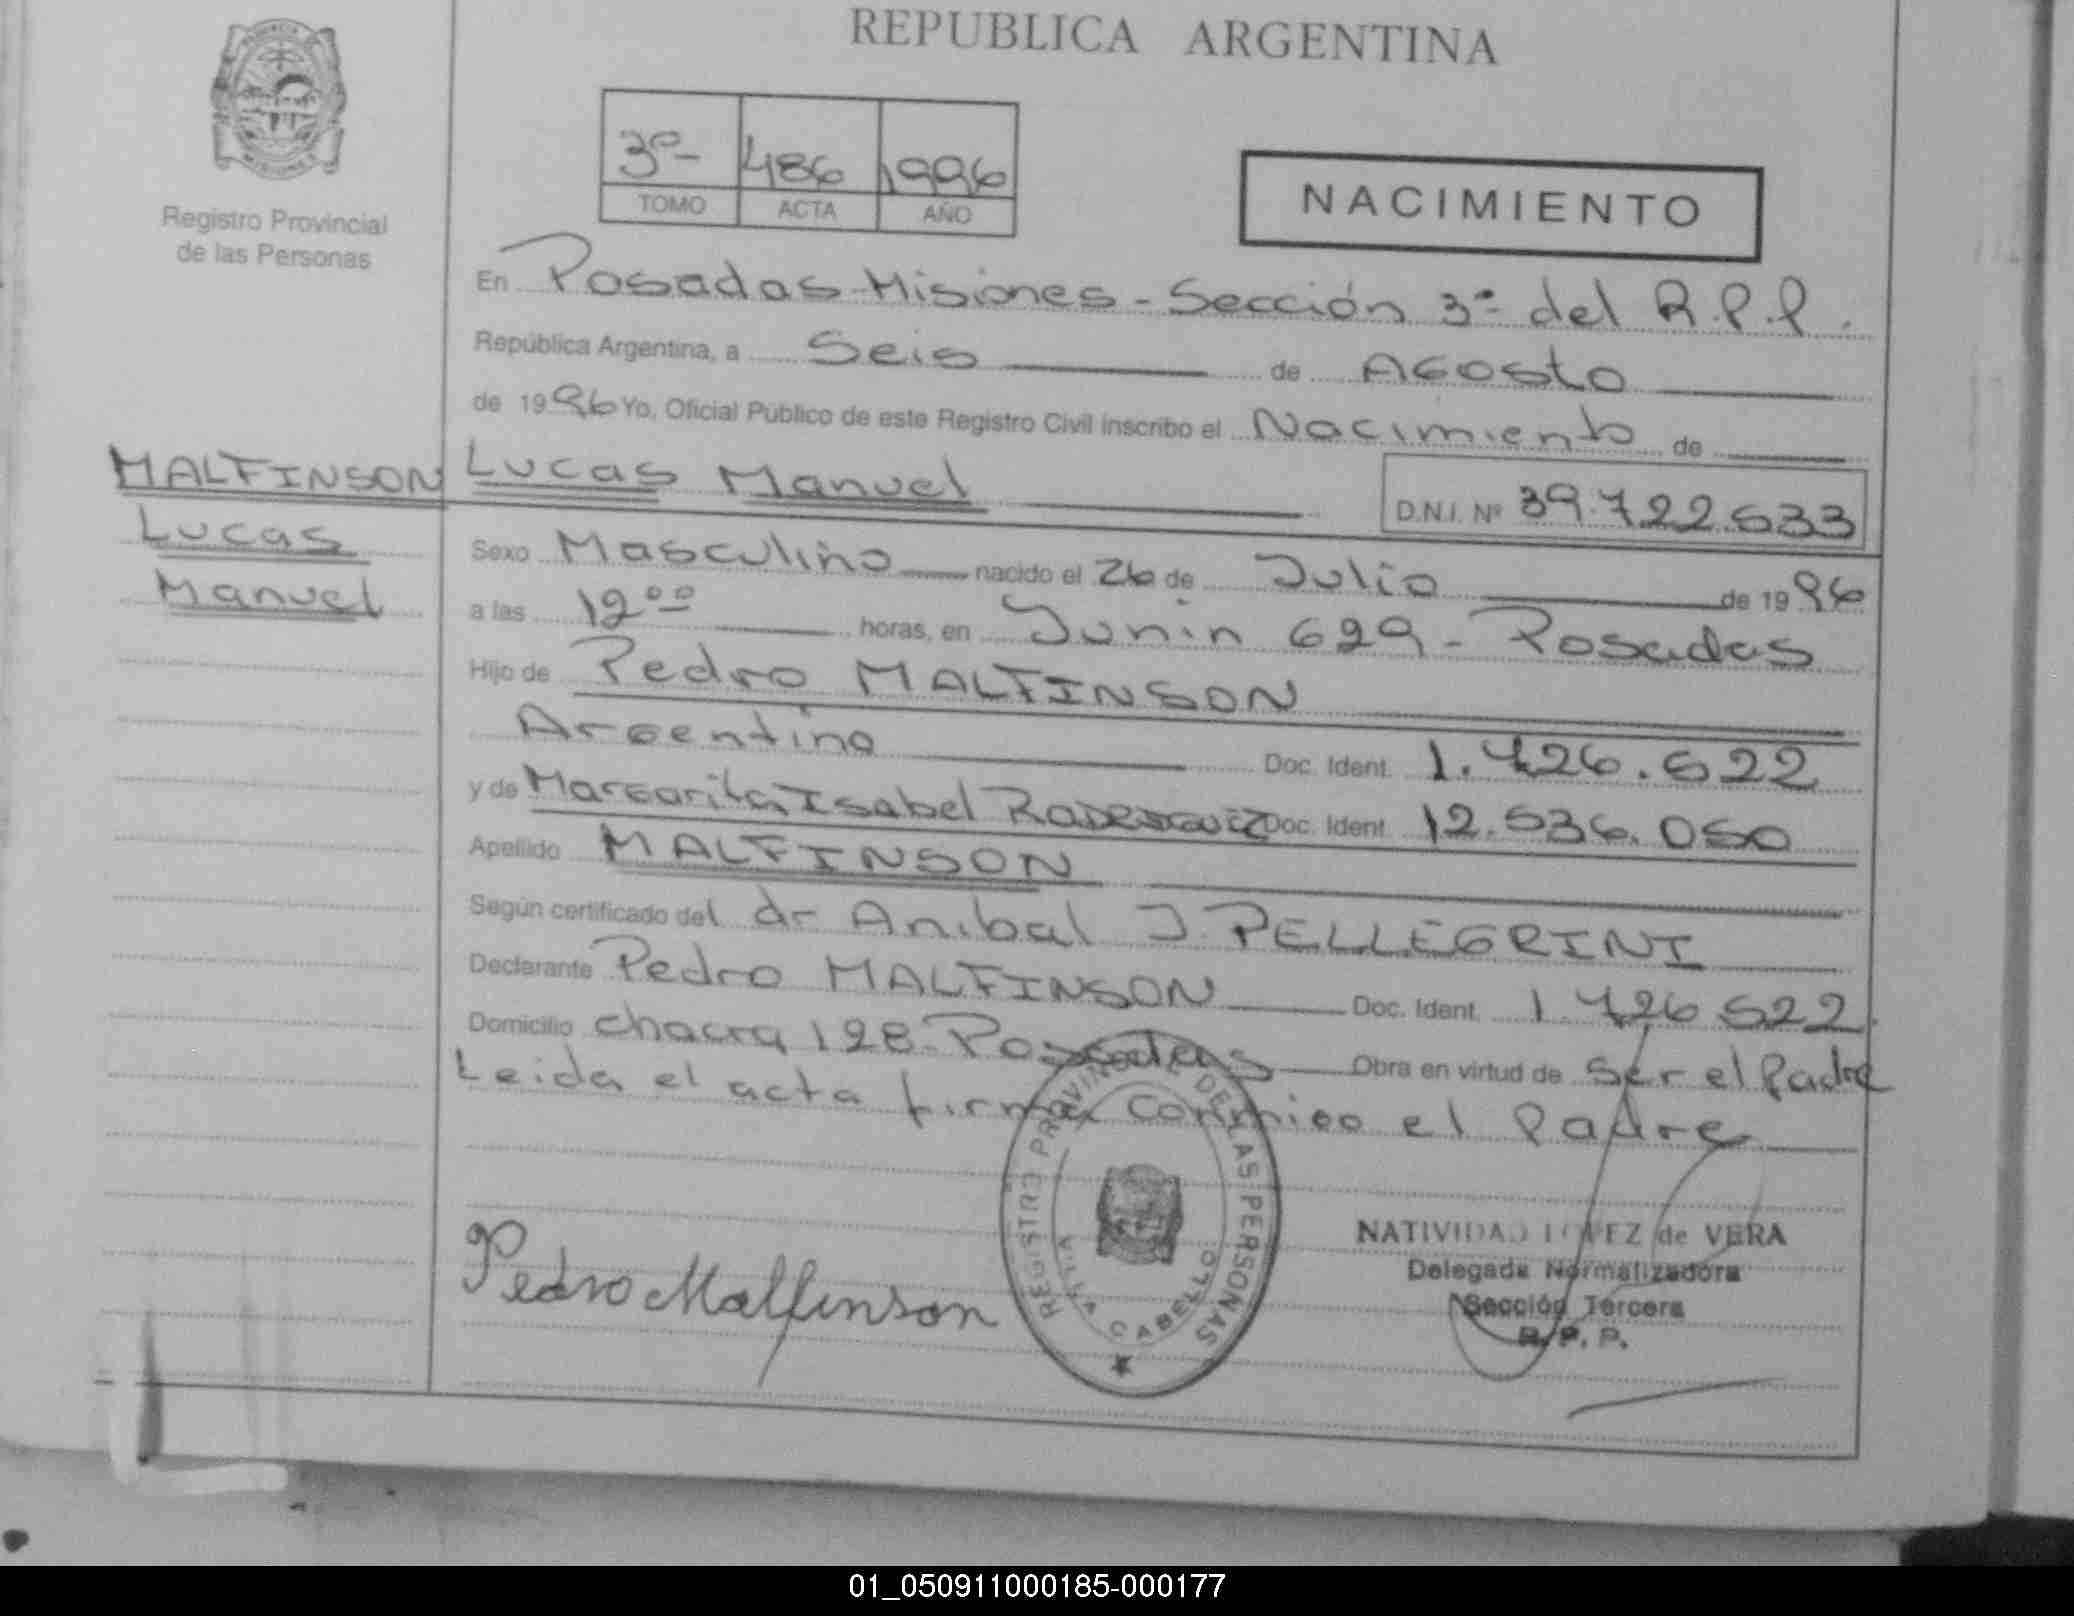 REPUBLICA ARGENTINA
Registro Provincial
de las Personas
3º- 486 1996
TOMO ACTA AÑO
NACIMIENTO
En Posadas-Misiones-Sección 3ª del R.P.P.
República Argentina, a Seis de Agosto
de 1996 Yo, Oficial Público de este Registro Civil inscribo el Nacimiento de
MALFINSON
Lucas
Manuel
Lucas Manuel D.N.I. Nº 39.722.533
Sexo Masculino nacido el 26 de Julio de 1996
a las 12⁰⁰ horas, en Junin 629 - Posadas
Hijo de Pedro MALFINSON
Argentino Doc. Ident. 1.726.522
y de Margarita Isabel Doc. Ident. 12.536.050
Apellido MALFINSON
Según certificado del dr Anibal J. PELLEGRINI
Declarante Pedro MALFINSON Doc. Ident. 1.726.522.
Domicilio chacra 128-Posadas Obra en virtud de ser el Padre
Leida el acta firma conmigo el Padre
Pedro Malfinson
REGISTRO PROVINCIAL DE LAS PERSONAS
VILLA CABELLO
NATIVIDAD LOPEZ de VERA
Delegada Normalizadora
Sección Tercera
R. P. P.
01_050911000185-000177